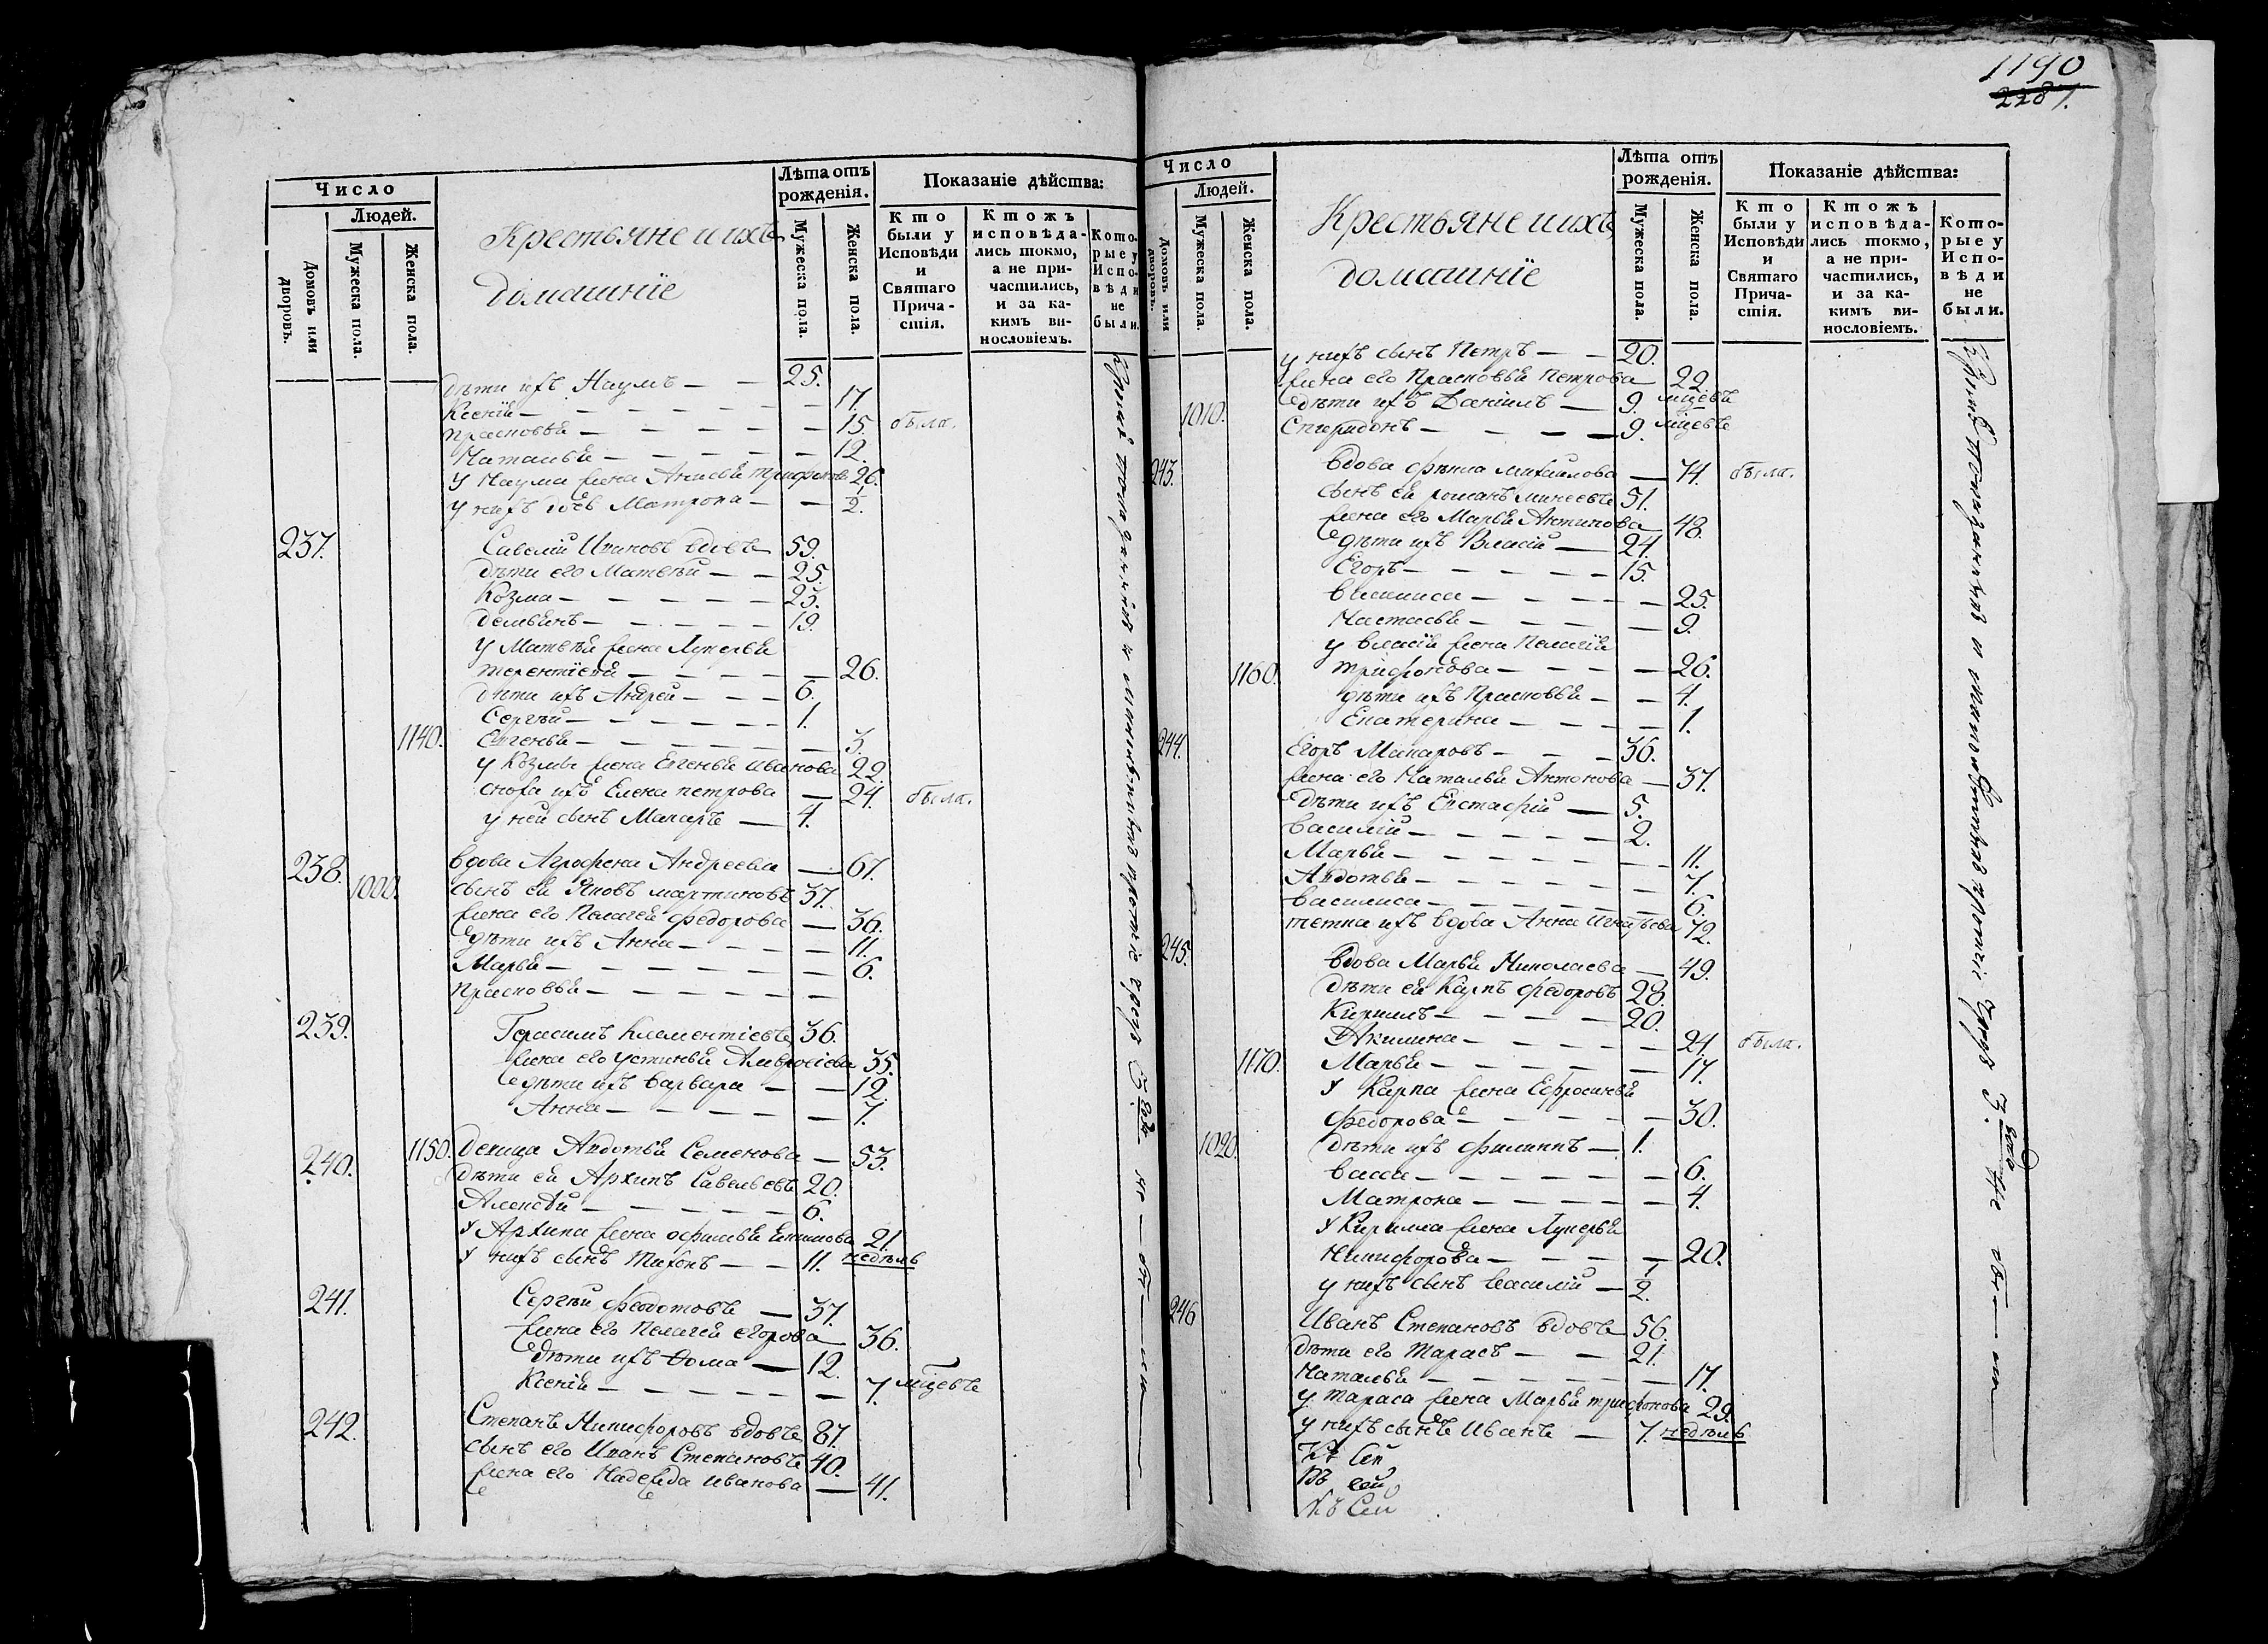 Число
Людей.
Домовъ или дворовъ.
Мужеска пола.
Женска пола.
Крестьяне и ихъ
домашніе
Лѣта отъ рожденія.
Мужеска пола.
Женска пола.
Показаніе дѣйства:
Кто были у Исповѣди и Святаго Прича-стія.
Ктожъ исповѣда-лись токмо, а не при-частились, и за ка-кимъ ви-нословіемъ.
Кото-рые у Испо-вѣди не были.
дѣти ихъ Наумъ — — 25.
Ксенія — — — — — 17.
Прасковья — — — — — 15. была.
Наталья — — — — — 12.
у Наума жена Анисья Трифонова 26.
у нихъ дочь Матрона — — 1/2.
237. Савелій Ивановъ вдовъ 59.
дѣти его Матвѣй — — 25.
Козма — — — — — 23.
Демьянъ — — — — — 19.
у Матвѣя жена Лукерья
Терентіева — — — — — 26.
дѣти ихъ Андрей — — — 6.
Сергѣй — — — — — 1.
1140. Евгенья — — — — — 3.
у Козмы жена Евгенья Иванова 22.
сноха ихъ Елена Петрова — 24. была.
у ней сынъ Макаръ — 4.
238. вдова Агрофена Андреева — 67.
1000. сынъ ея Яковъ Мартиновъ 37.
жена его Пелагея Федорова — 36.
дѣти ихъ Анна — — — — 11.
Марья — — — — — — 6.
Прасковья — — — — —
239. Герасимъ Клементіевъ 36.
жена его Устинья Амвросіева 35.
дѣти ихъ Варвара — — 12.
Анна — — — — — 7.
1150. Девица Авдотья Семенова — 53.
240. дѣти ея Архипъ Савельевъ 20.
Алексѣй — — — — — 6.
у Архипа жена Офимья 21.
у нихъ сынъ Тихонъ — — 11. недѣль
241. Сергѣй Федотовъ — 37.
жена его Пелагея Егорова — 36.
дѣти ихъ Фома — 12.
Ксенія — — — — — 7. мцевъ
242. Степанъ Никифоровъ вдовъ 87.
сынъ его Иванъ Степановъ 40.
жена его Надежда Иванова — 41.
1190
2287.
Число
Людей.
Домовъ или дворовъ.
Мужеска пола.
Женска пола.
Крестьяне и ихъ
домашніе
Лѣта отъ рожденія.
Мужеска пола.
Женска пола.
Показаніе дѣйства:
Кто были у Исповѣди и Святаго Прича-стія.
Ктожъ исповѣда-лись токмо, а не при-частились, и за ка-кимъ ви-нословіемъ.
Кото-рые у Испо-вѣди не были.
у нихъ сынъ Петръ — — 20.
жена его Прасковья Петрова 22.
1010. дѣти ихъ Даніилъ — 9. мцевъ
Спиридонъ — — — 9. мцевъ
243. вдова Михайлова — 74. была.
сынъ ея Романъ Минеевъ 51.
жена его Марья Антипова 48.
дѣти ихъ Власій — 24.
Егоръ — — — — — 15.
Василиса — — — — — 25.
Настасья — — — — 9.
у Власія жена Пелагія
1160. Трифонова — — — — 26.
дѣти ихъ Прасковья — — 4.
Екатерина — — — — 1.
244. Егоръ Макаровъ — — 36.
жена его Наталья Антонова — 37.
дѣти ихъ Евстафій — 5.
Василій — — — — — 2.
Марья — — — — — — 11.
Авдотья — — — — — 7.
Василиса — — — — — 6.
тетка ихъ вдова Анна Игнатьева 72.
245. вдова Марья Николаева — 49.
дѣти ея Карпъ Федоровъ 28.
Кирилъ — — — — — 20.
Акилина — — — — — 24. была.
1170. Марья — — — — — 17.
у Карпа жена Ефросинья
Федорова — — — — — 30.
1020. дѣти ихъ Филиппъ — 1.
Васса — — — — — 6.
Матрона — — — — — 4.
у Кирилла жена Лукерья
Никифорова — — — — 20.
у нихъ сынъ Василій — 1/2.
246 Иванъ Степановъ вдовъ 56.
дѣти его Тарасъ — — 21.
Наталья — — — — — 17.
у Тараса жена Марья Трифонова 29.
у нихъ сынъ Иванъ — 7. недѣль
Къ Сей